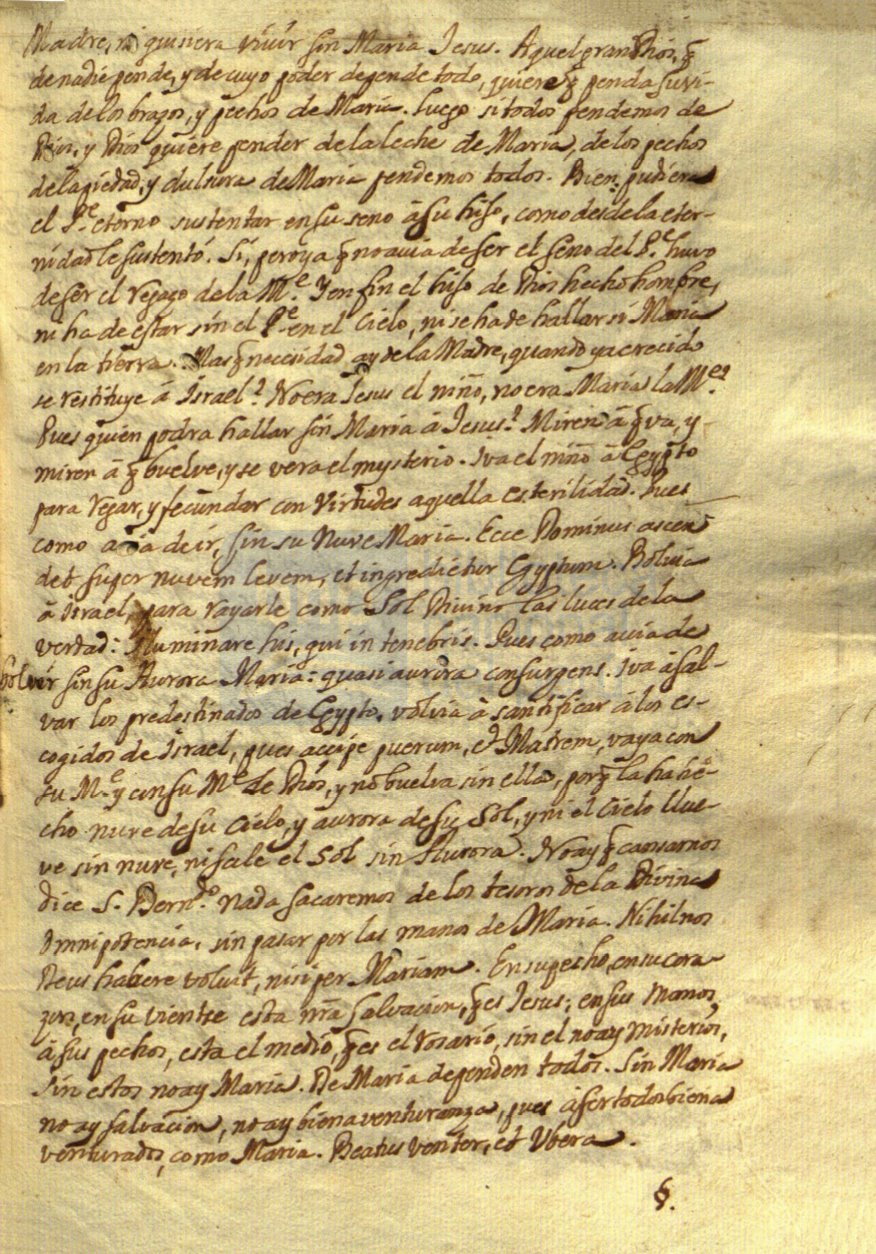 Madre, ni quisiera vivir sin Maria Jesus. Aquel gran Dios, q̃
de nadie pende, y de cuyo poder depende todo, quiere q̃ penda su vi-
da de los brazos, y pechos de Maria. Luego si todos pendemos de
Dios, y Dios quiere pender de la leche de Maria, de los pechos
de la piedad, y dulsura de Maria pendemos todos. Bien pudiera
el P.e eterno sustentar en su seno à su hijo, como desde la eter-
nidad le sustentó. Sí, pero ya q̃ no avia de ser el seno del P.e huvo
de ser el regazo de la M.e Y en fin el hijo de Dios hecho hombre,
ni ha de estar sin el P.e en el Cielo, ni se ha de hallar sī Maria
en la tierra. Mas q̃ necesidad ay de la Madre, quando ya crecido
se restituye à Israel? No era Jesus el niño, no era Maria la M.e?
Pues quien podra hallar sin Maria à Jesus? Miren à q̃ va, y
miren à q̃ buelve, y se vera el mysterio. Iva el niño à Egypto
para regar, y fecundar con virtudes aquella esterilidad. Pues
como avia de ir, sin su Nuve Maria. Ecce Dominus ascen-
det super nuvem levem, et ingredietur Egyptum. Bolvia
à Israel, para rayarle como Sol Divino las luces de la
verdad: Illuminare his, qui in tenebris. Pues como avia de
bolvér sin su Aurora Maria: quasi aurora consurgens. Iva à sal-
var los predestinados de Egypto, volvia à santificar à los es-
cogidos de Israel, pues accipe puerum, et Matrem, vaya con
su M.e y con su M.e de Dios, y no buelva sin ella, porq̃ la ha he-
cho nuve de su Cielo, y aurora de su Sol, y ni el Cielo llue-
ve sin nuve, ni sale el Sol sin Aurora. No ay q̃ cansarnos
dice S. Bern.do nada sacaremos de los tesoros de la Divina
Omnipotencia, sin pasar por las manos de Maria. Nihil nos
Deus habere voluit, nisi per Mariam. En su pecho, en su cora-
zon, en su vientre esta nr̃a salvacion, q̃ es Jesus; en sus manos,
à sus pechos, esta el medio, q̃ es el Rosario, sin el no ay misterios,
sin estos no ay Maria. De Maria dependen todos. Sin Maria
no ay salvacion, no ay bienaventuranza, pues à ser todos biena
venturados, como Maria. Beatus venter, et Ubera.
§.